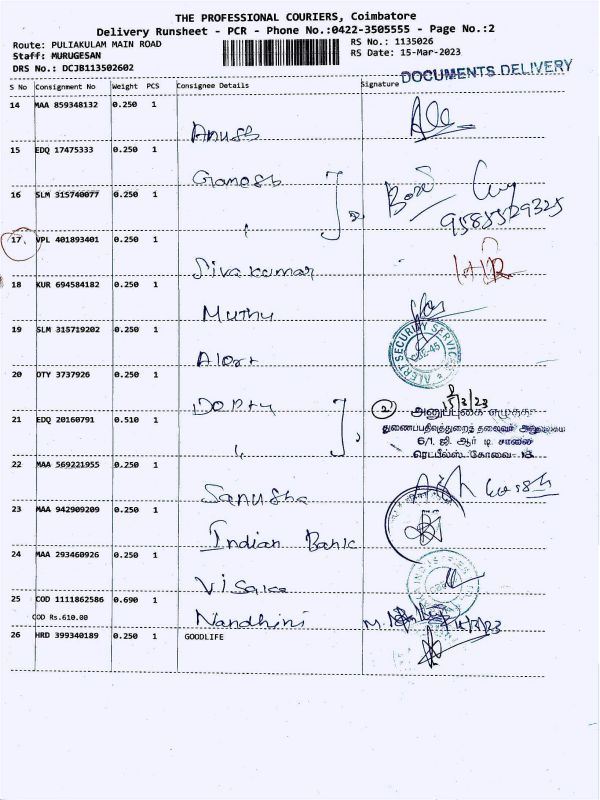 THE PROFESSIONAL COURIERS, Coimbatore
Delivery Runsheet - PCR - Phone No.:0422-3505555 - Page No.:2
Route: PULIAKULAM MAIN ROAD
RS No.: 1135026
Staff: MURUGESAN
RS Date: 15-Mar-2023
DRS No.: DCJB113502602
DOCUMENTS DELIVERY
S No Consignment No Weight PCS Consignee Details Signature
14 MAA 859348132 0.250 1
Anush
15 EDQ 17475333 0.250 1
Ganesh
16 SLM 315740077 0.250 1
9585529325
17 VPL 401893401 0.250 1
Sivakumar
18 KUR 694584182 0.250 1
Muthu
19 SLM 315719202 0.250 1
Alert
ALERT SECURITY SERVICES
CBE-45
20 OTY 3737926 0.250 1
21 EDQ 20160791 0.510 1
2
அனுப்புகை எழுத்தர்
துணைப்பதிவுத்துறைத் தலைவர் அலுவலகம்
6/1, ஜி. ஆர் டி சாலை
ரெட்பீல்ஸ், கோவை - 18
22 MAA 569221955 0.250 1
Sanusha
23 MAA 942909209 0.250 1
Indian Bank
24 MAA 293460926 0.250 1
25 COD 1111862586 0.690 1
Nandhini
COD Rs.610.00
26 HRD 399340189 0.250 1 GOODLIFE